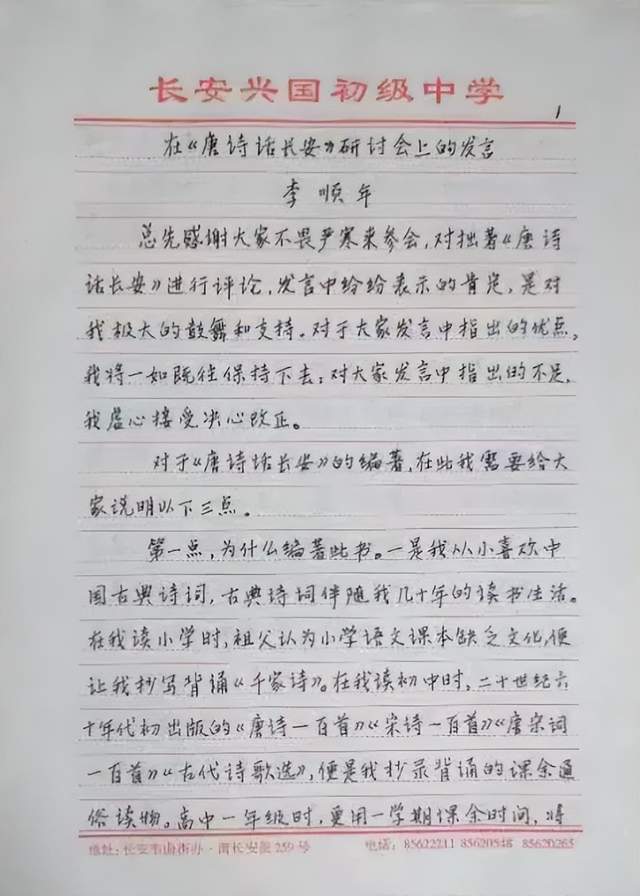 长安兴国初级中学
1
在《唐诗话长安》研讨会上的发言
李顺年
总先感谢大家不畏严寒来参会,对拙著《唐诗
话长安》进行评论,发言中给纷表示的肯定,是对
我极大的鼓舞和支持。对于大家发言中指出的优点,
我将一如既往保持下去;对大家发言中指出的不足,
我虚心接受决心改正。
对于《唐诗话长安》的编著,在此我需要给大
家说明以下三点。
第一点,为什么编著此书。一是我从小喜欢中
国古典诗词,古典诗词伴随我几十年的读书生活。
在我读小学时,祖父认为小学语文课本缺乏文化,便
让我抄写背诵《千家诗》。在我读初中时,二十世纪六
十年代初出版的《唐诗一百首》《宋诗一百首》《唐宋词
一百首》《古代诗歌选》,便是我抄录背诵的课余通
俗读物。高中一年级时,更用一学期课余时间,将
地址:长安韦曲街办·南长安街259号 电话:85622211 85620548 85620265